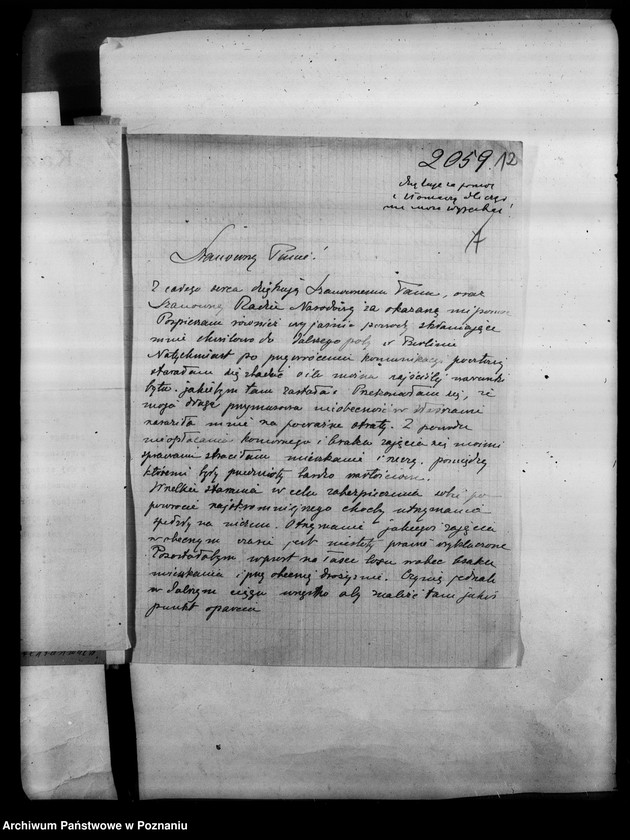 2059.12
dziękuje za pomoc
i tłomaczy dlaczego
nie może wyjechać
Szanowny Panie!
Z całego serca dziękuję Szanownemu Panu, oraz
Szanownej Radzie Narodowej za okazaną mi pomoc
Pospieszam również wyjaśnić powody skłaniające
mnie chwilowo do dalszego pobytu w Berlinie
Natychmiast po przywróceniu komunikacji pocztowej
starałam się zbadać o ile można najściślej warunki
bytu jakiebym tam zastała. Przekonałam się, że
moja długa przymusowa nieobecność w
naraziła mnie na poważne straty. Z powodu
nieopłacania komornego i braku zajęcia się moimi
sprawami straciłam mieszkanie i rzeczy, pomiędzy
któremi były przedmioty bardzo wartościowe.
Wszelkie starania w celu zabezpieczenia sobie po
powrocie najskromniejszego choćby utrzymania
spełzły na niczem. Otrzymanie jakiegoś zajęcia
w obecnym czasie jest niestety prawie wykluczone
Pozostałabym wprost na łasce losu wobec braku
mieszkania i przy obecnej drożyźnie. Czynię jednak
w dalszym ciągu wszystko aby znaleźć tam jakiś
punkt oparcia
Archiwum Państwowe w Poznaniu